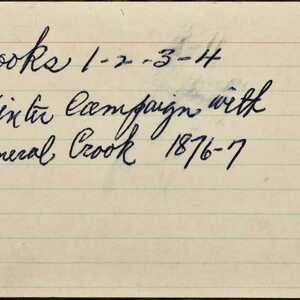 ooks 1-2-3-4
inter Campaign with
neral Crook 1876-7